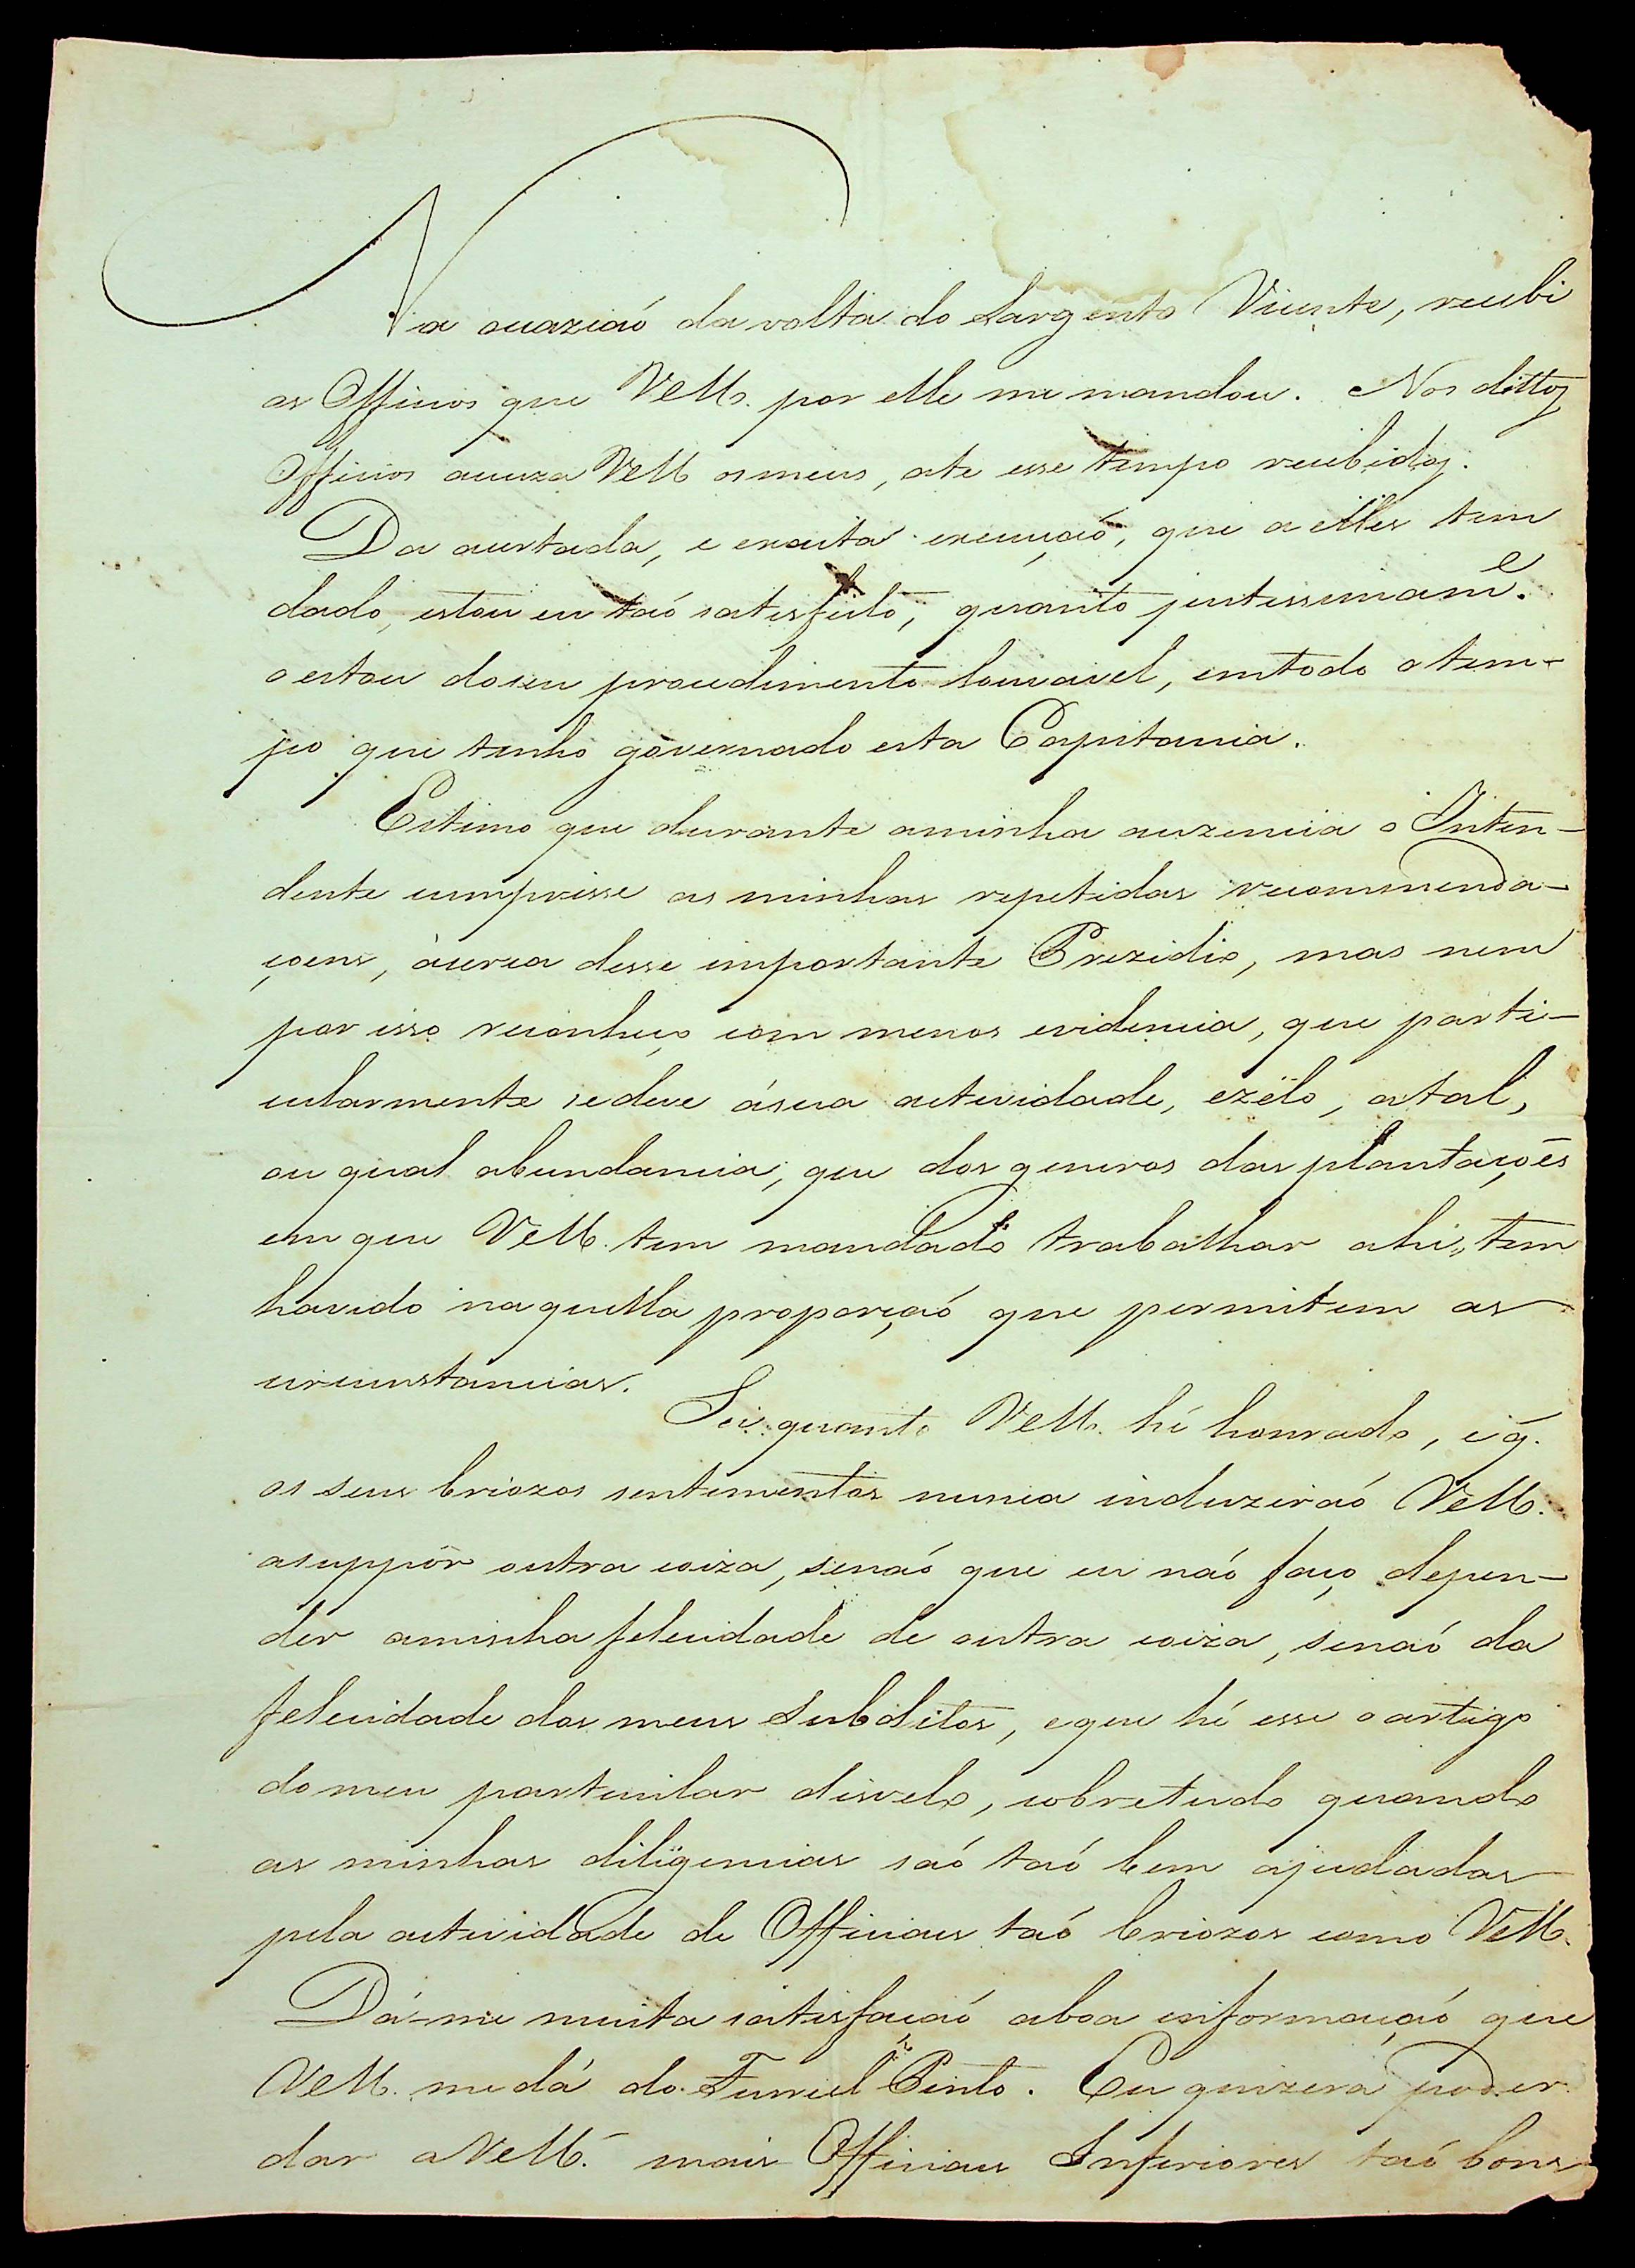 Na occaziaó da volta do Sargento Vicente, recebi
os Officios que VM. por elle me mandou. Nos dittos
Officios accuza VM os meus, ate esse tempo recebidos.
Da acertada, e exacta execuçaó, que a elles tem
dado, estou eu taó satisfeito, quanto justissimam.e
o estou do seu procedimento louvavel, em todo o tem-
po que tenho governado esta Capitania.
Estimo que durante a minha auzencia o Inten-
dente cumprisse as minhas repetidas recommenda-
çoens, àcerca desse importante Prezidio, mas nem
por isso reconheço com menos evidencia, que parti-
cularmente se deve ásua actividade, ezêlo, a tal,
ou qual abundancia, que dos generos das plantaçoẽs
em que VM. tem mandado trabalhar ahi, tem
havido naquella proporçaó que permitem as
circunstancias.
Sei quanto VM. hé honrado, e q̃.
os seus briozos sentimentos nunca induziraó VM.
a suppôr outra coiza, senaó que eu naó faço depen-
der a minha felicidade de outra coiza, senaó da
felecidade dos meus Subditos, e que hé esse o artigo
do meu particular disvelo, sobretudo quando
as minhas diligencias saó taó bem ajudadas
pela actividade de Officiaes taó briozos como VM.
Dá-me muita satisfaçaó a boa informaçaó que
VM. me dá do Furriel Pinto. Eu quizera poder
dar a VM. mais Officiaes Inferiores taó bons